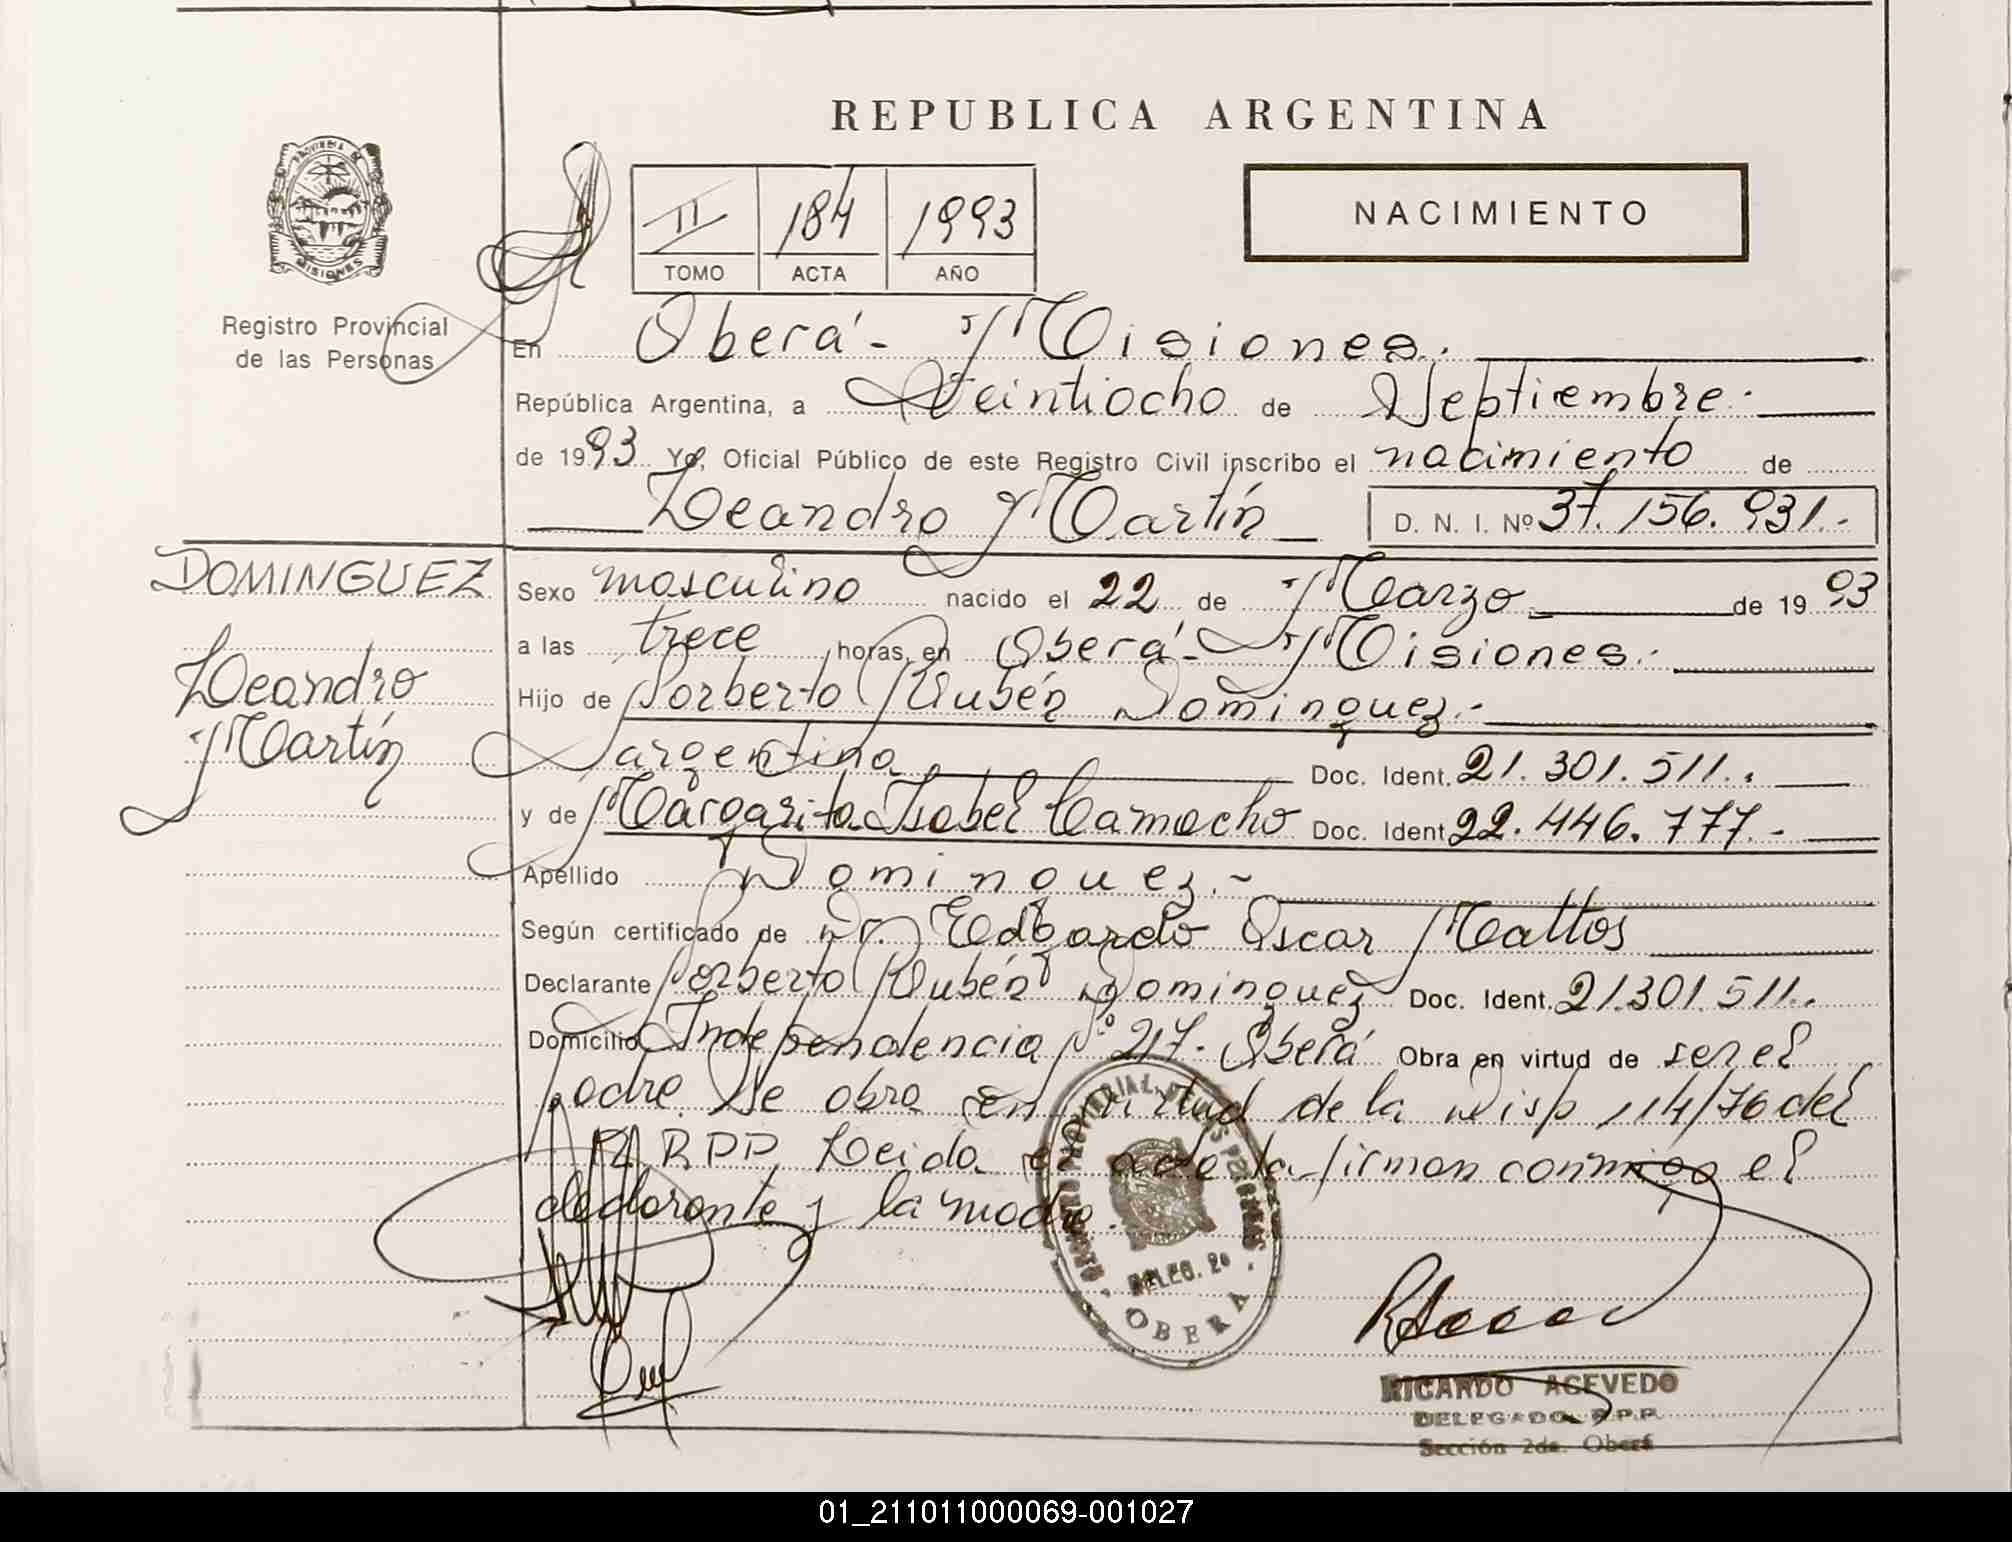 REPUBLICA ARGENTINA
PROVINCIA DE
MISIONES
Registro Provincial
de las Personas
II 184 1993
TOMO ACTA AÑO
NACIMIENTO
En Oberá - Misiones.
República Argentina, a Veintiocho de Septiembre.
de 1993 Yo, Oficial Público de este Registro Civil inscribo el nacimiento de
Leandro Martín D. N. I. Nº 37.156.931.-
DOMINGUEZ
Leandro
Martín
Sexo masculino nacido el 22 de Marzo de 1993
a las trece horas, en Oberá - Misiones.-
Hijo de Norberto Rubén Dominguez.-
argentina Doc. Ident. 21.301.511..
y de Margarita Isabel Camacho Doc. Ident 22.446.777.-
Apellido Dominguez.-
Según certificado de Dr. Edgardo Oscar Mattos
Declarante Norberto Rubén Dominguez Doc. Ident. 21.301.511..
Domicilio Independencia Nº 217. Oberá Obra en virtud de ser el
padre. Se obra en virtud de la Disp 114/76 del
R.P.P. Leida el acta la firman conmigo el
declarante y la madre.
REGISTRO PROVINCIAL DE LAS PERSONAS
DELEG. 2a
OBERA
RICARDO ACEVEDO
DELEGADO R.P.P.
Sección 2da. Oberá
01_211011000069-001027